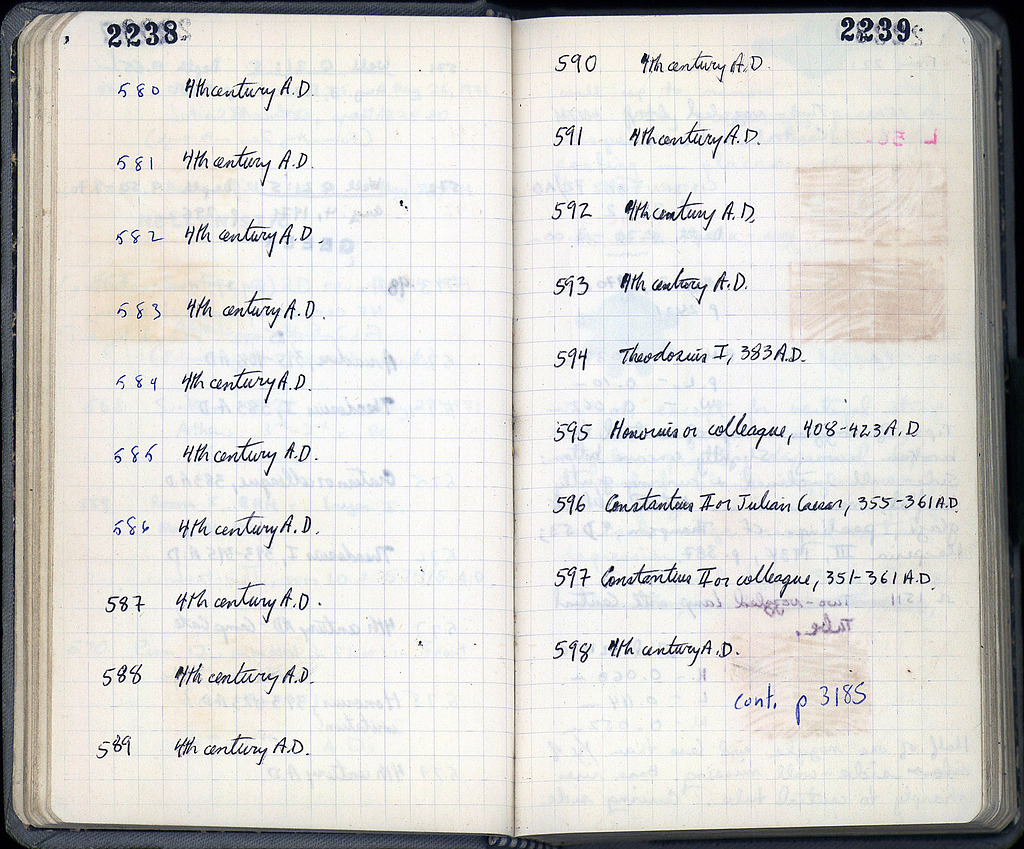 2238
580 4th century A.D.
581 4th century A.D.
582 4th century A.D.
583 4th century A.D.
584 4th century A.D.
585 4th century A.D.
586 4th century A.D.
587 4th century A.D.
588 4th century A.D.
589 4th century A.D.
2239
590 4th century A.D.
591 4th century A.D.
592 4th century A.D.
593 4th century A.D.
594 Theodosius I, 383 A.D.
595 Honorius or colleague, 408-423 A.D.
596 Constantius II or Julian Caesar, 355-361 A.D.
597 Constantius II or colleague, 351-361 A.D.
598 4th century A.D.
cont. p 3185